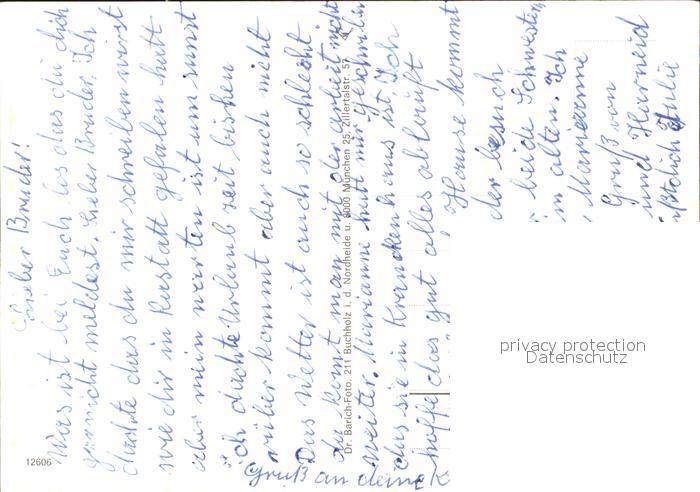 Lieber Bruder!
Was ist bei Euch los das du dich
garnicht meldest. Lieber Bruder. Ich
dachte das du mir schreiben wirst
wie dir in Rastatt gefalen hatt
aber mein warten ist um sunst
ich dachte Urlaub zeit bisken
rüber kommt aber auch nicht
Das Wetter ist auch so schlecht
da komt man mit der arbeit nicht
weiter. Marianne hatt mir geschrieben
das sie in Kranckenhaus ist. Ich
hoffe das gut alles abläuft
Hause kommt
der besuch
beide Schwestern
in alten. Ich
Marieanne
Gruß von
und Harneid
Julie
Gruß an deine
Dr. Barich-Foto. 211 Buchholz i. d. Nordheide u. 8000 München 25, Zillertalstr. 57
12606
privacy protection
Datenschutz